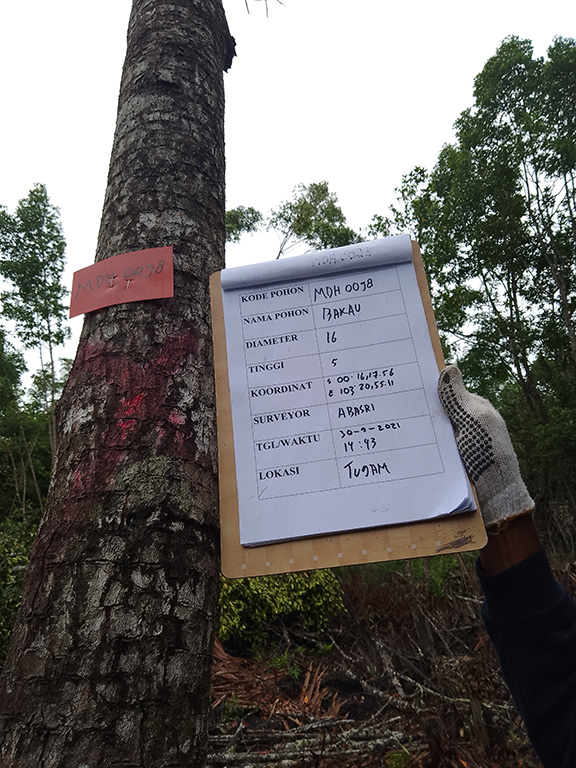 MDH 0098
MDH 0098
KODE POHON MDH 0098
NAMA POHON BAKAU
DIAMETER 16
TINGGI 5
KOORDINAT S 00.16,17.56
E 103.20,55.11
SURVEYOR ABASRI
TGL/WAKTU 30-9-2021
14:43
LOKASI TUGAM